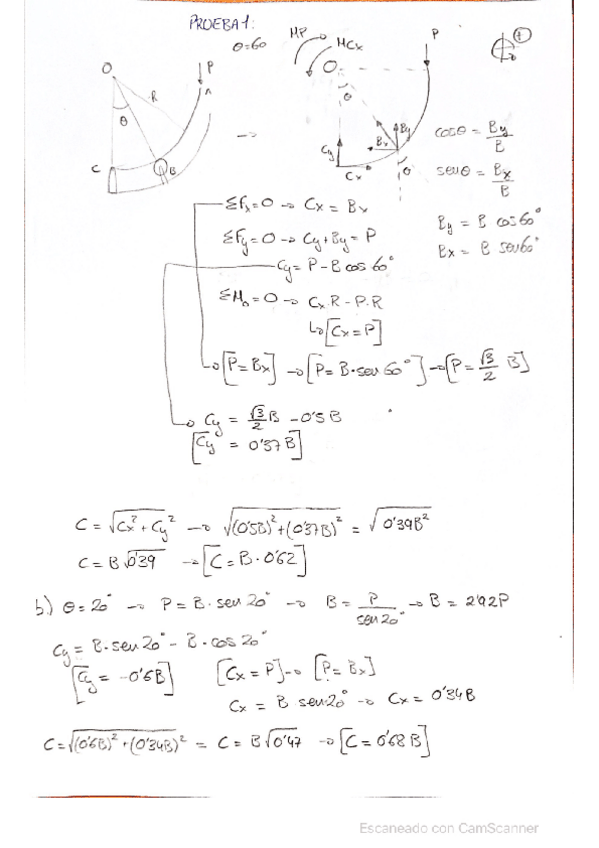 PRUEBA 1:
θ=60
MP
MCx
P
O
P
A
R
θ
C
B
→
O
θ
By
Bx
Cy
Cx
θ
cosθ = By/B
senθ = Bx/B
By = B cos 60°
Bx = B sen 60°
ΣFx=0 → Cx = Bx
ΣFy=0 → Cy+By = P
Cy= P - B cos 60°
ΣMo=0 → Cx·R - P·R
↳[Cx=P]
→[P=Bx] →[P=B·sen 60°] →[P=√3/2 B]
→ Cy = √3/2 B - 0'5B
[Cy = 0'37B]
C = √Cx²+Cy² → √(0'5B)²+(0'37B)² = √0'39B²
C = B√0'39 → [C = B·0'62]
b) θ=20° → P = B·sen 20° → B = P/sen20° → B = 2'92P
Cy = B·sen 20° - B·cos 20°
[Cy = -0'6B] [Cx = P] → [P=Bx]
Cx = B sen 20° → Cx = 0'34B
C=√(0'6B)²+(0'34B)² = C = B√0'47 → [C = 0'68B]
Escaneado con CamScanner